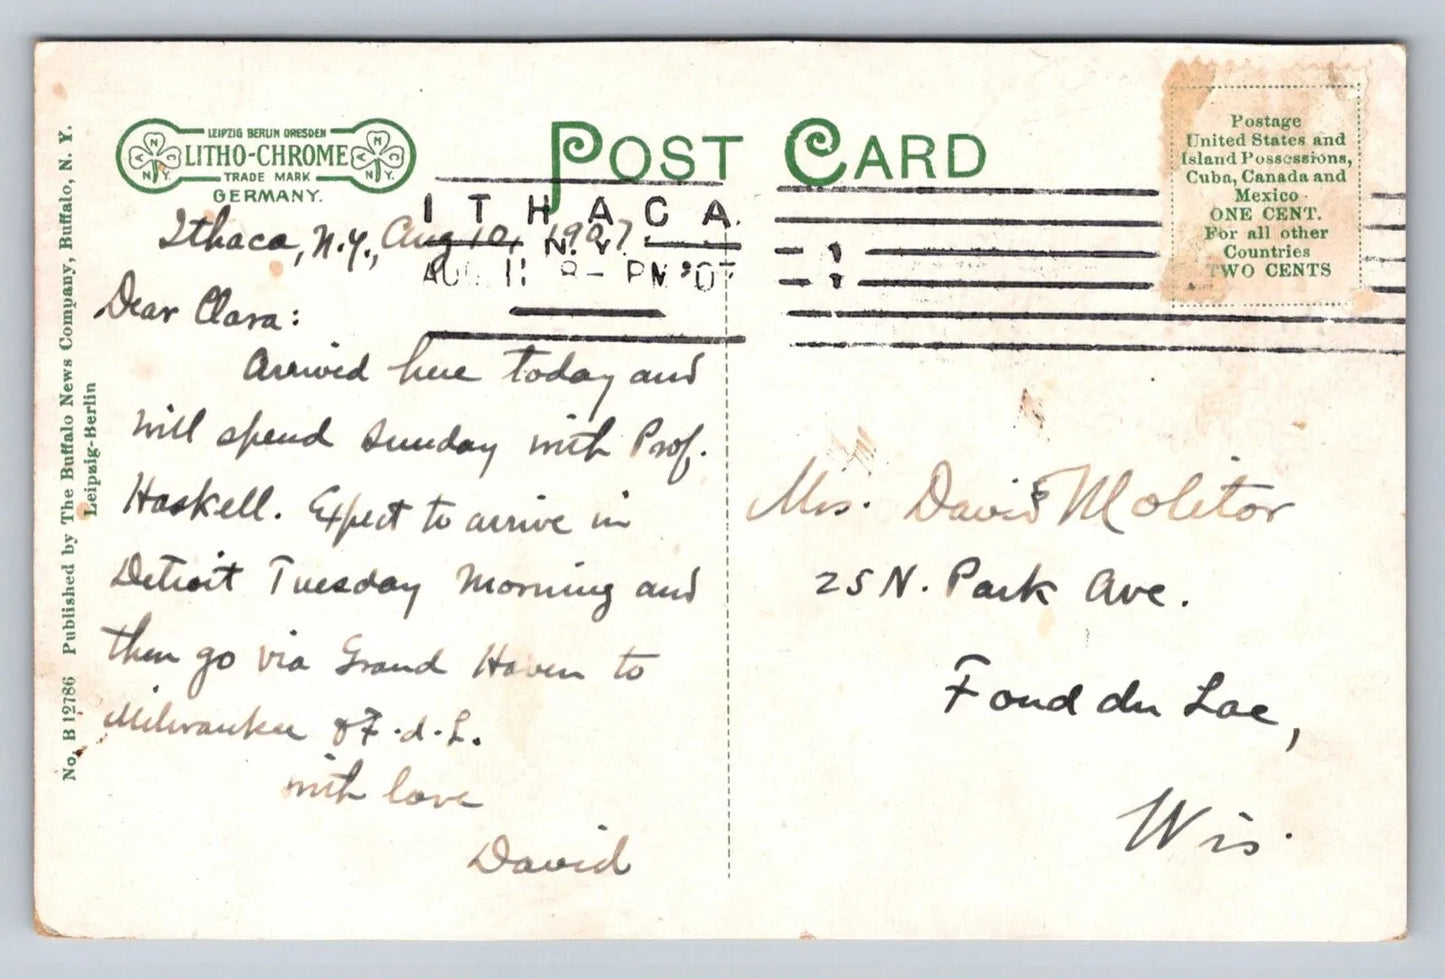 No. B 12786 Published by The Buffalo News Company, Buffalo, N. Y.
Leipzig-Berlin
LEIPZIG BERLIN DRESDEN
LITHO-CHROME
TRADE MARK
GERMANY.
POST CARD
Postage
United States and
Island Possessions,
Cuba, Canada and
Mexico
ONE CENT.
For all other
Countries
TWO CENTS
ITHACA.
N. Y.
AUG 11 8- PM '07
Ithaca, N.Y., Aug 10, 1907.
Dear Clara:
Arrived here today and
will spend Sunday with Prof.
Haskell. Expect to arrive in
Detroit Tuesday Morning and
then go via Grand Haven to
Milwaukee & F.d.L.
with love
David
Mrs. David Molitor
25 N. Park Ave.
Fond du Lac,
Wis.